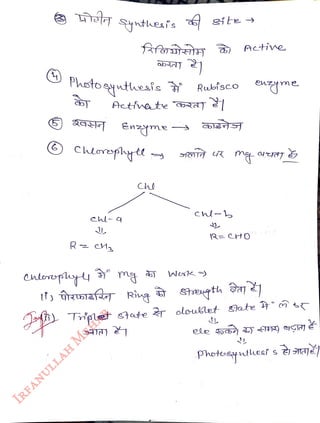 ③ प्रोटीन Synthesis की site →
रिबोसोम को Active
करता है।
④ Photosynthesis में Rubisco enzyme
को Activate करता है।
⑤ श्वसन Enzyme → काइनेज
⑥ Chlorophyll → जलाने पर Mg बचता है।
Chl
Chl-a Chl-b
R = CH3 R = CHO
Chlorophyll में Mg का Work →
(i) पोरफाइरिन Ring को Strength देता है।
(ii) Triplet State से doublet State में ले कर
आता है। ele रुकने का समय बढ़ाता है
Photosynthesis हो जाता है।
IRFANULLAH